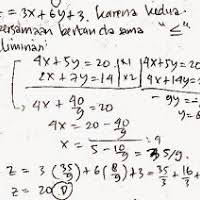 = 3x + 6y + 3. Karena kedua
persamaan bertanda sama "≤"
liminasi
4x + 5y = 20 |x1| 4x + 5y = 20
2x + 7y = 14 |x2| 4x + 14y =
-9y = -
4x + 40/9 = 20
4x = 20 - 40/9
x = 5 - 10/9 = 35/9.
z = 3(35/9) + 6(8/9) + 3 = 35/3 + 16/3 +
z = 20 (D)